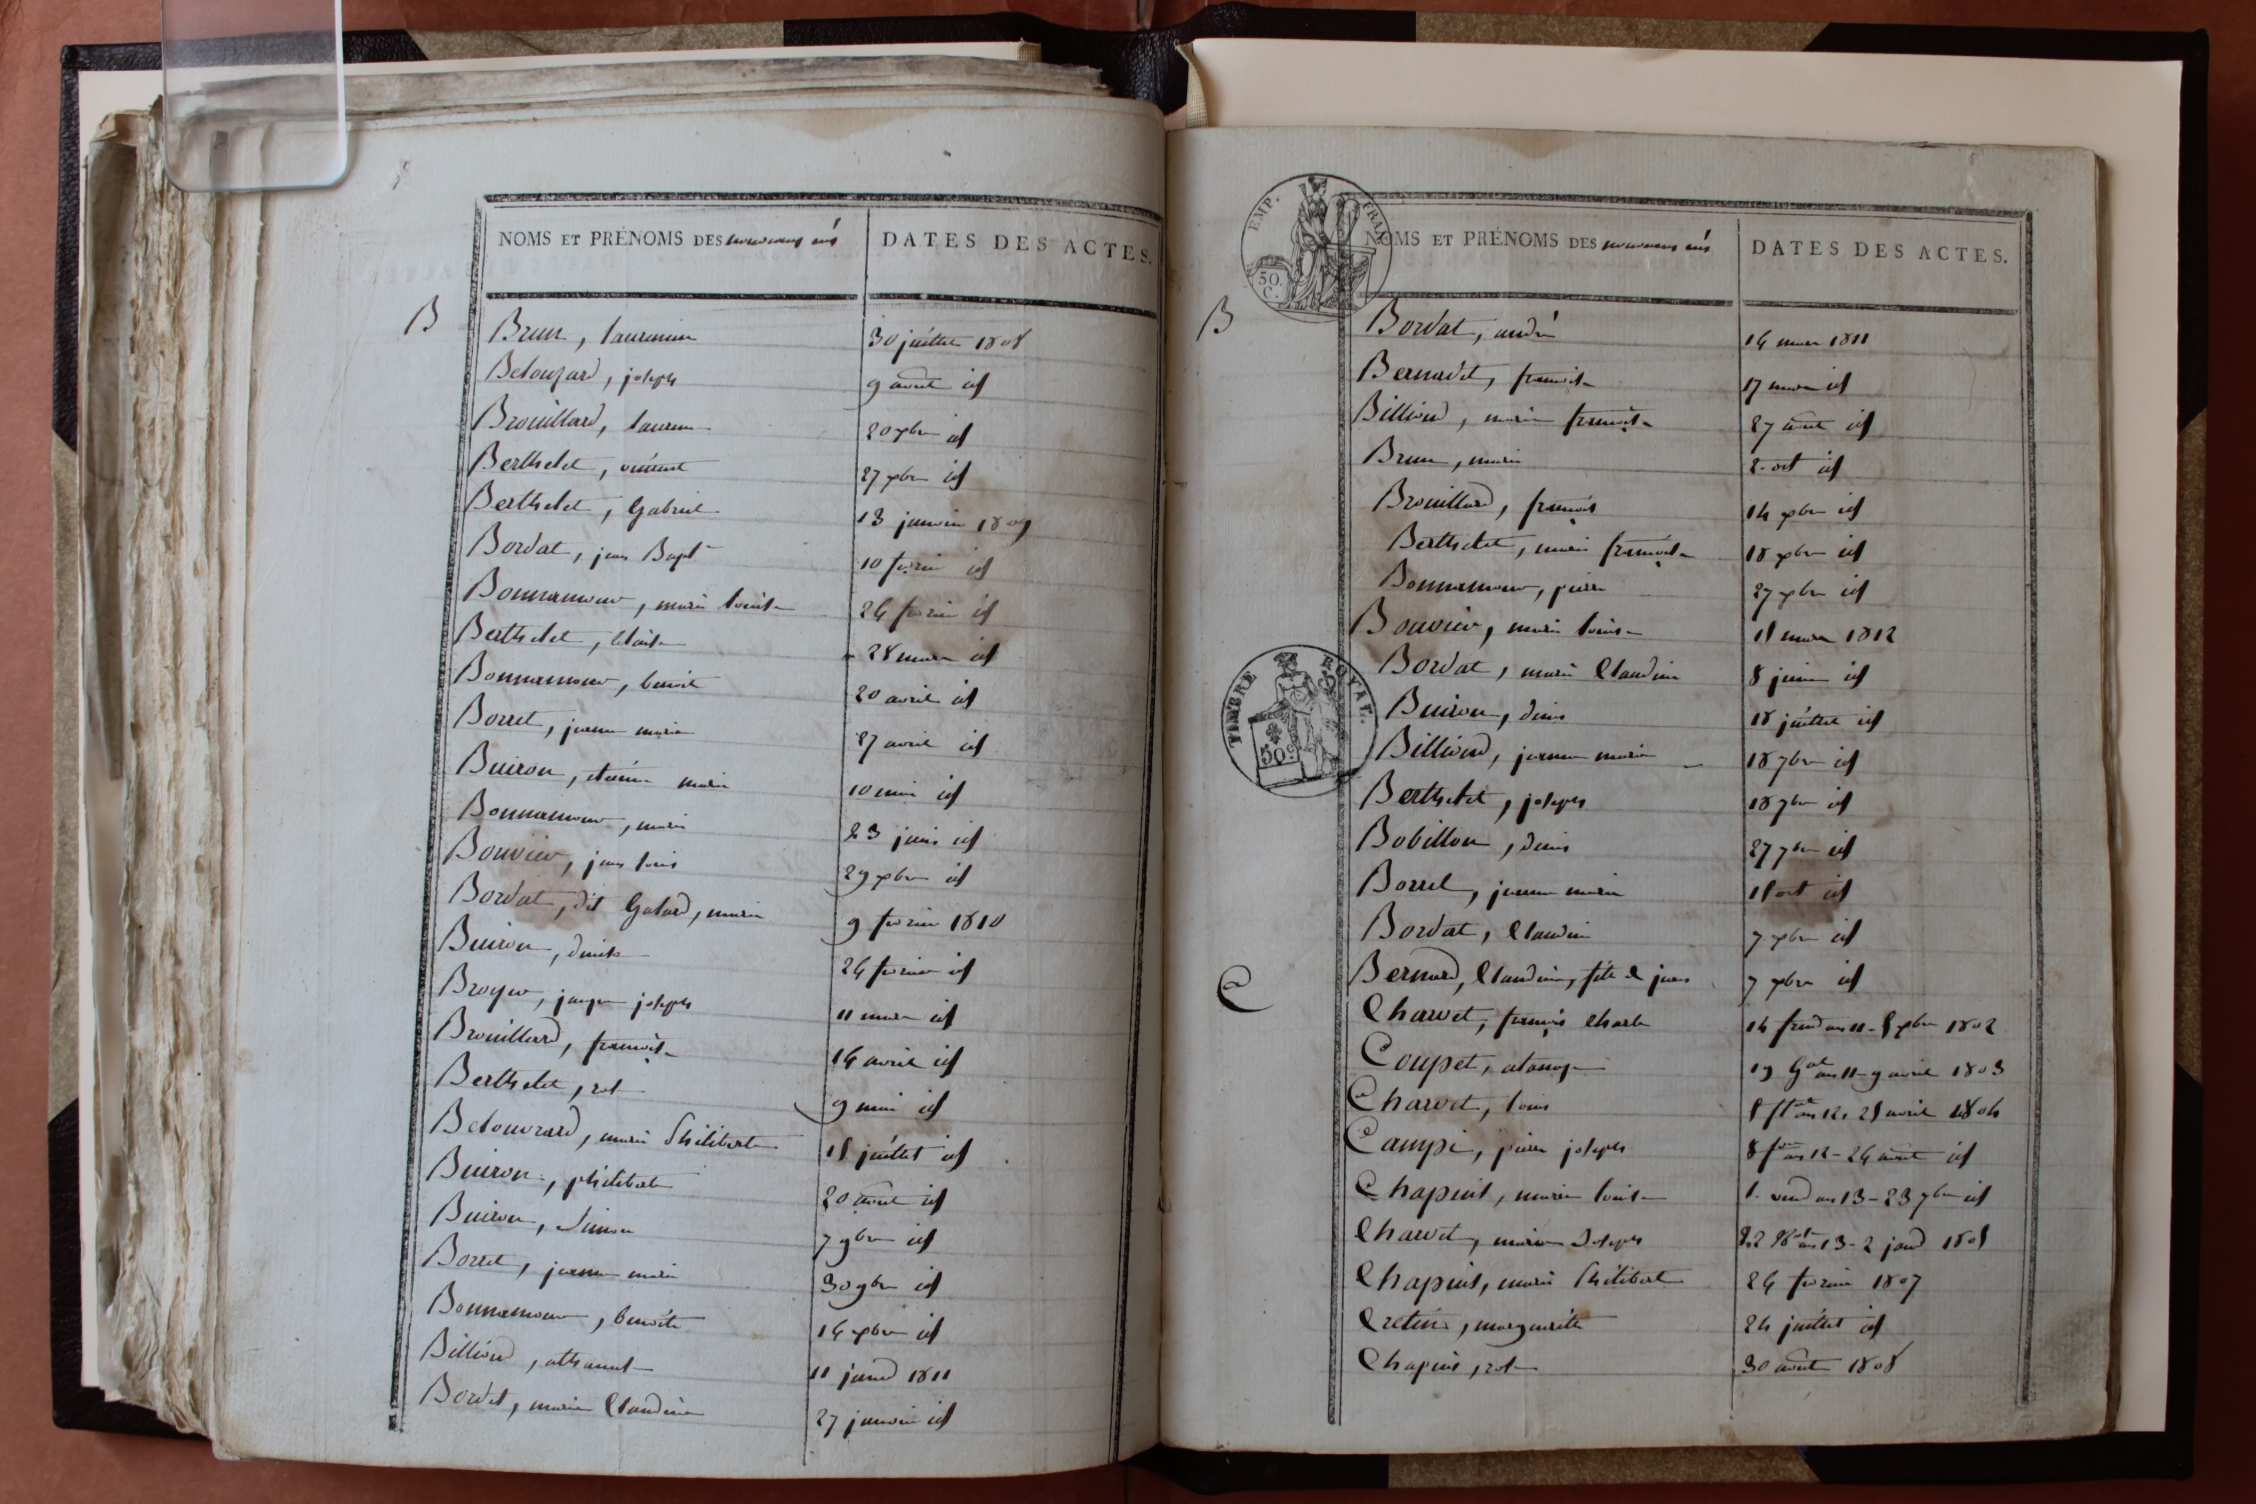 NOMS ET PRÉNOMS DES nouveaux nés DATES DES ACTES.
B
Brun, laurencine 30 juillet 1808
Belouzard, joseph 9 août id
Brouillard, 20 xbre id
Berthelet, vincent 27 xbre id
Berthelet, Gabriel 13 janvier 1809
Bordat, jean Bapt 10 février id
Bonnamour, marie louise 24 février id
Berthelet, 28 mars id
Bonnamour, benoit 20 avril id
Borret, jeanne marie 27 avril id
Buiron, marie 10 mai id
Bonnamour, marie 23 juin id
Bouvier, jean louis 29 xbre id
Bordat, dit Galard, marie 9 février 1810
Buiron, denise 24 février id
Broyer, jaque joseph 11 mars id
Brouillard, françoise 14 avril id
Berthelet, 9 mai id
Belouzard, marie Philiberte 15 juillet id
Buiron, philiberte 20 août id
Buiron, Simon 7 9bre id
Borret, jeanne marie 30 9bre id
Bonnamour, benoite 14 xbre id
Billioud, athanase 11 janv 1811
Bordet, marie Claudine 27 janvier id
TEMP. FRAN
50. C.
NOMS ET PRÉNOMS DES nouveaux nés DATES DES ACTES.
B
Bordat, andré 14 mars 1811
Bernadet, françoise 17 mars id
Billioud, marie françoise 27 août id
Brun, marie 2 oct id
Brouillard, françois 14 xbre id
Berthelet, marie françoise 18 xbre id
Bonnamour, pierre 27 xbre id
Bouvier, marie louise 15 mars 1812
Bordat, marie Claudine 8 juin id
TIMBRE ROYAL.
50 c
Buiron, denis 18 juillet id
Billioud, jeanne marie 18 7bre id
Berthelet, joseph 18 7bre id
Bobillon, denis 27 7bre id
Borret, jeanne marie 15 oct id
Bordat, Claudine 7 xbre id
Bernard, Claudine, fille de jean 7 xbre id
C
Charvet, françois Charle 14 an 11 - 5 xbre 1802
Coupet, 19 Gal an 11 - 9 avril 1803
Charvet, louis 5 fl an 12, 25 avril 1804
Campi, pierre joseph 8 an 12 - 24 août id
Chapuis, marie louise 1. vend an 13 - 23 7bre id
Charvet, marie Joseph an 13 - 2 janv 1805
Chapuis, marie Philiberte 24 février 1807
Cretin, marguerite 24 juillet id
Chapuis, 30 août 1808